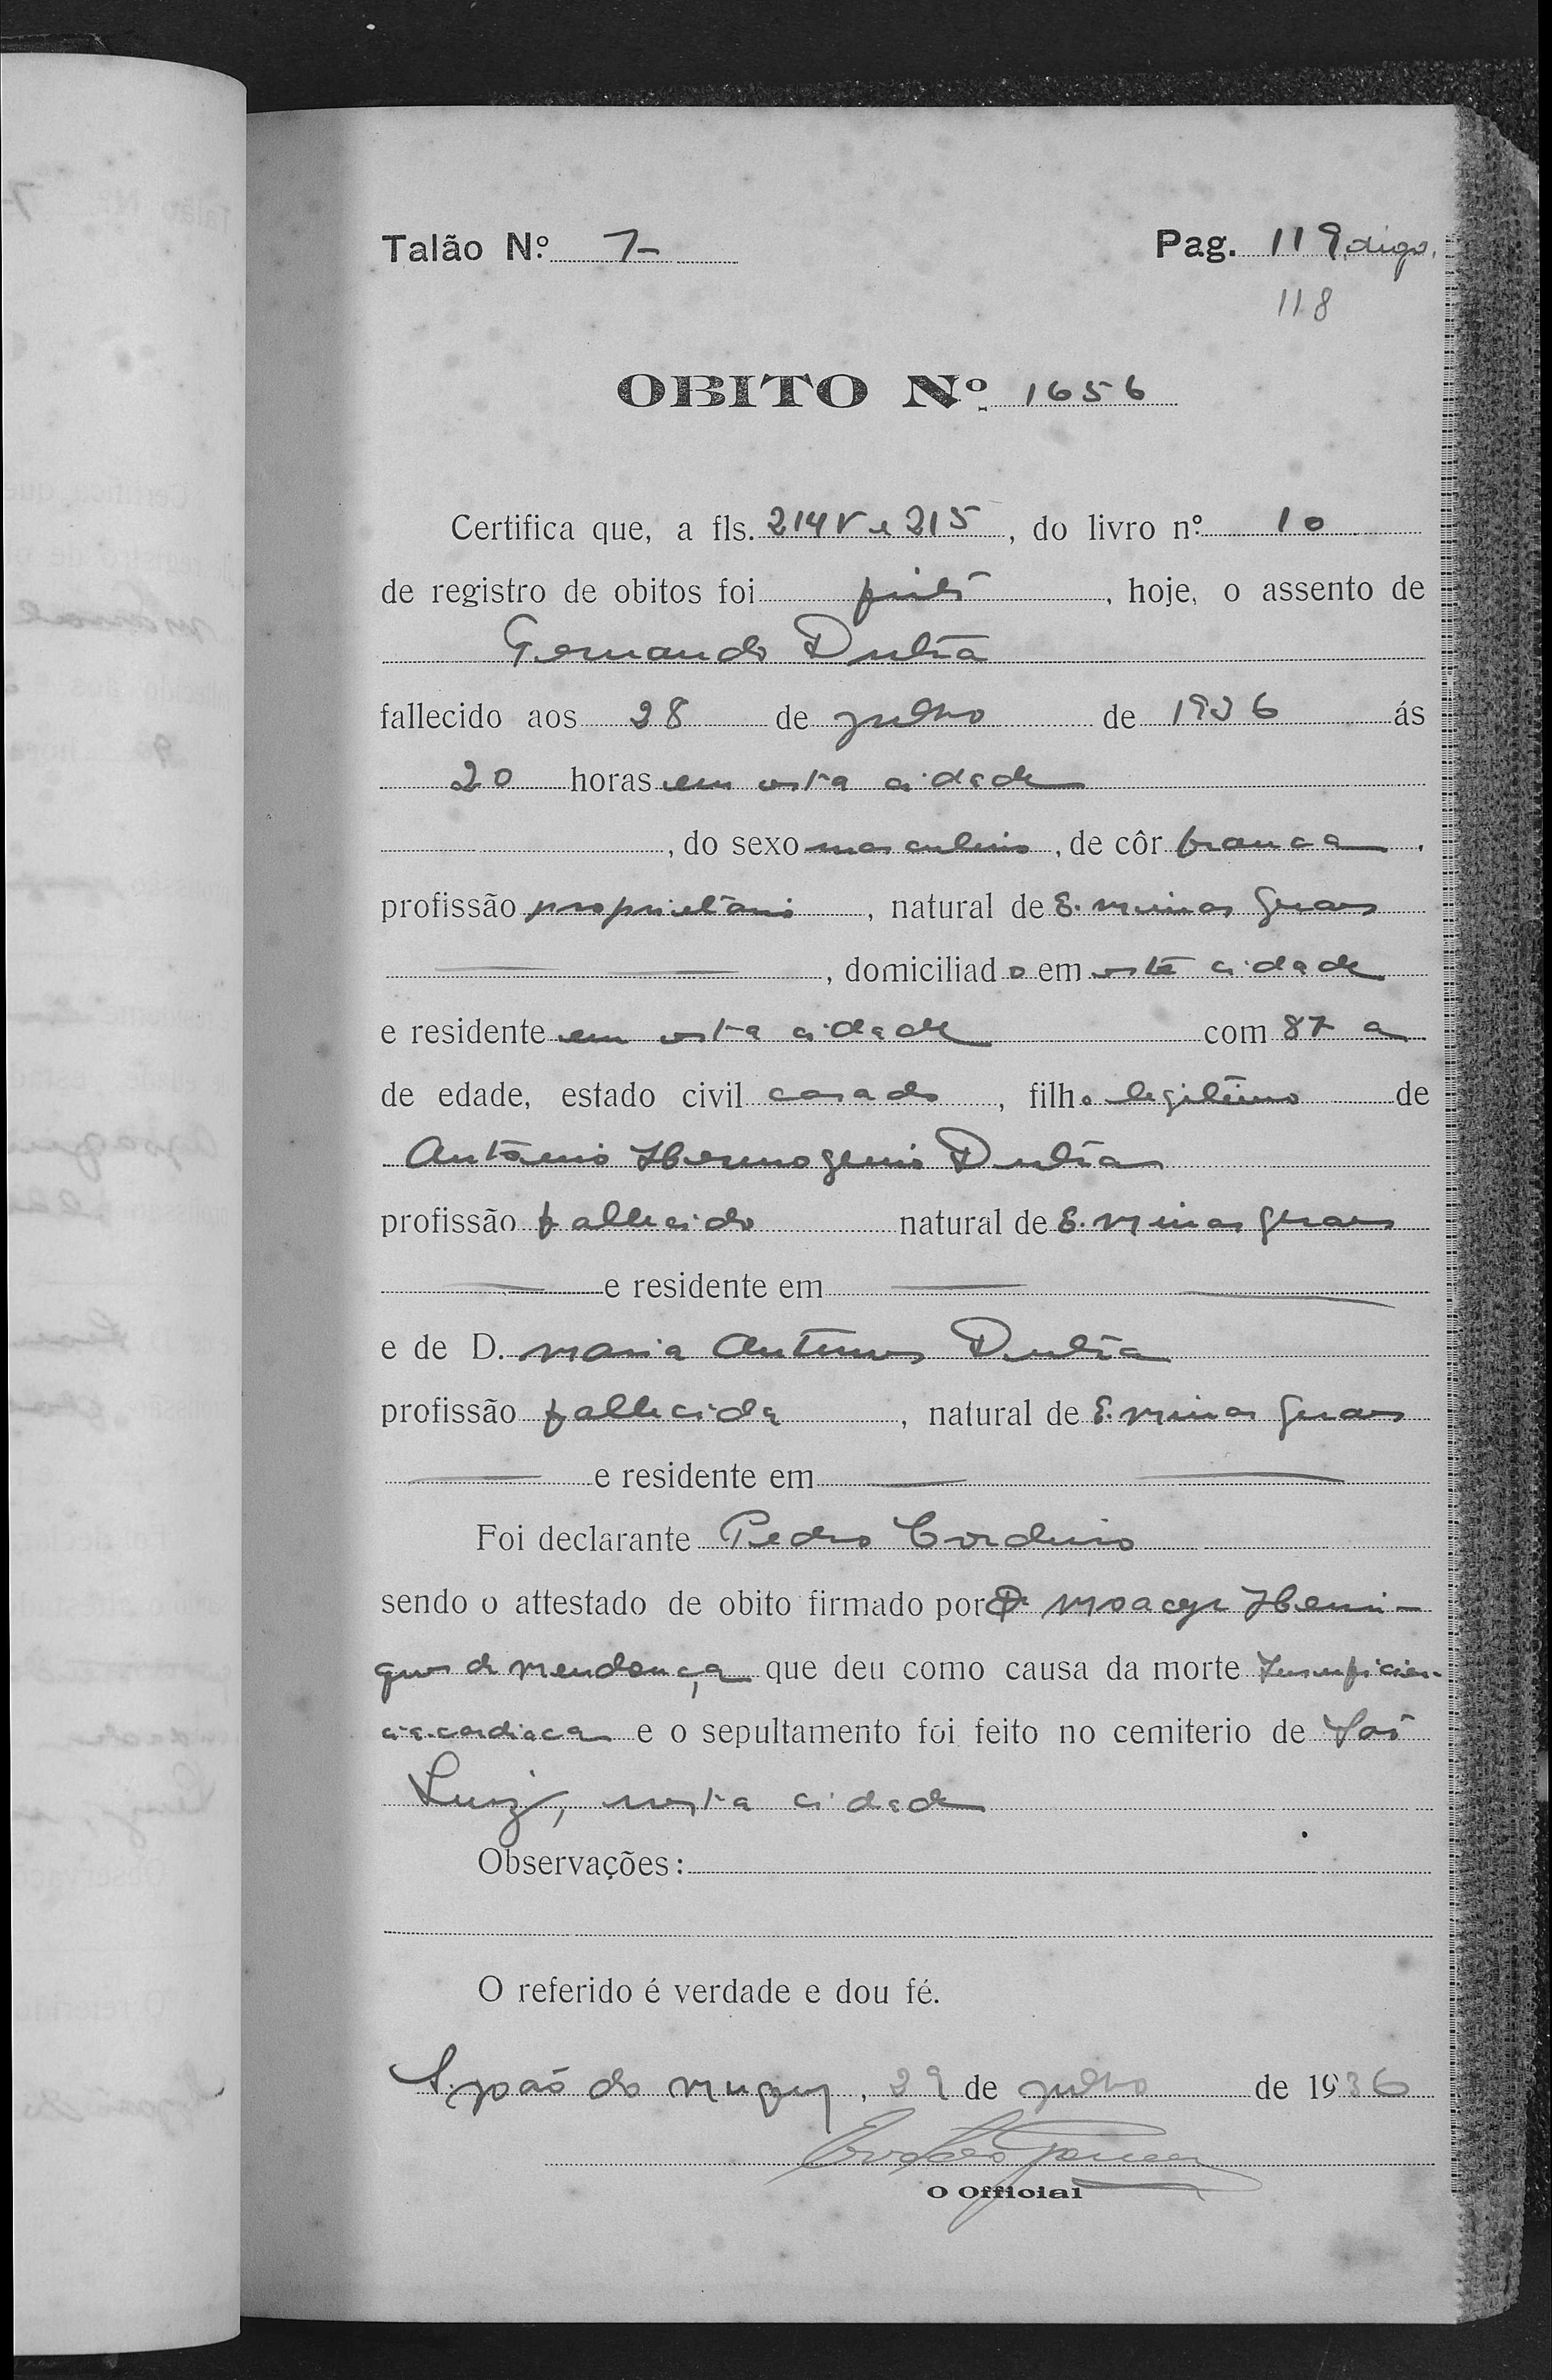 Talão Nº 7- Pag. 119, digo,
118
OBITO Nº 1656
Certifica que, a fls. 214 V e 215, do livro nº 10
de registro de obitos foi feito, hoje, o assento de
Fernando Dutra
fallecido aos 28 de julho de 1936 ás
20 horas em esta cidade
, do sexo masculino, de côr branca,
profissão proprietario, natural de E. Minas Geraes
, domiciliado em esta cidade
e residente em esta cidade com 87 a
de edade, estado civil casado, filho legitimo de
Antonio Hermogenio Dutra
profissão fallecido natural de E. Minas Geraes
e residente em
e de D. Maria Dutra
profissão fallecida, natural de E. Minas Geraes
e residente em
Foi declarante Pedro Cordeiro
sendo o attestado de obito firmado por Dr Moacyr Henri-
ques de Mendonça que deu como causa da morte Insuficien-
cia cardiaca e o sepultamento foi feito no cemiterio de São
Luiz, nesta cidade
Observações:
O referido é verdade e dou fé.
S. João do Muquy, 29 de julho de 1936
O Official